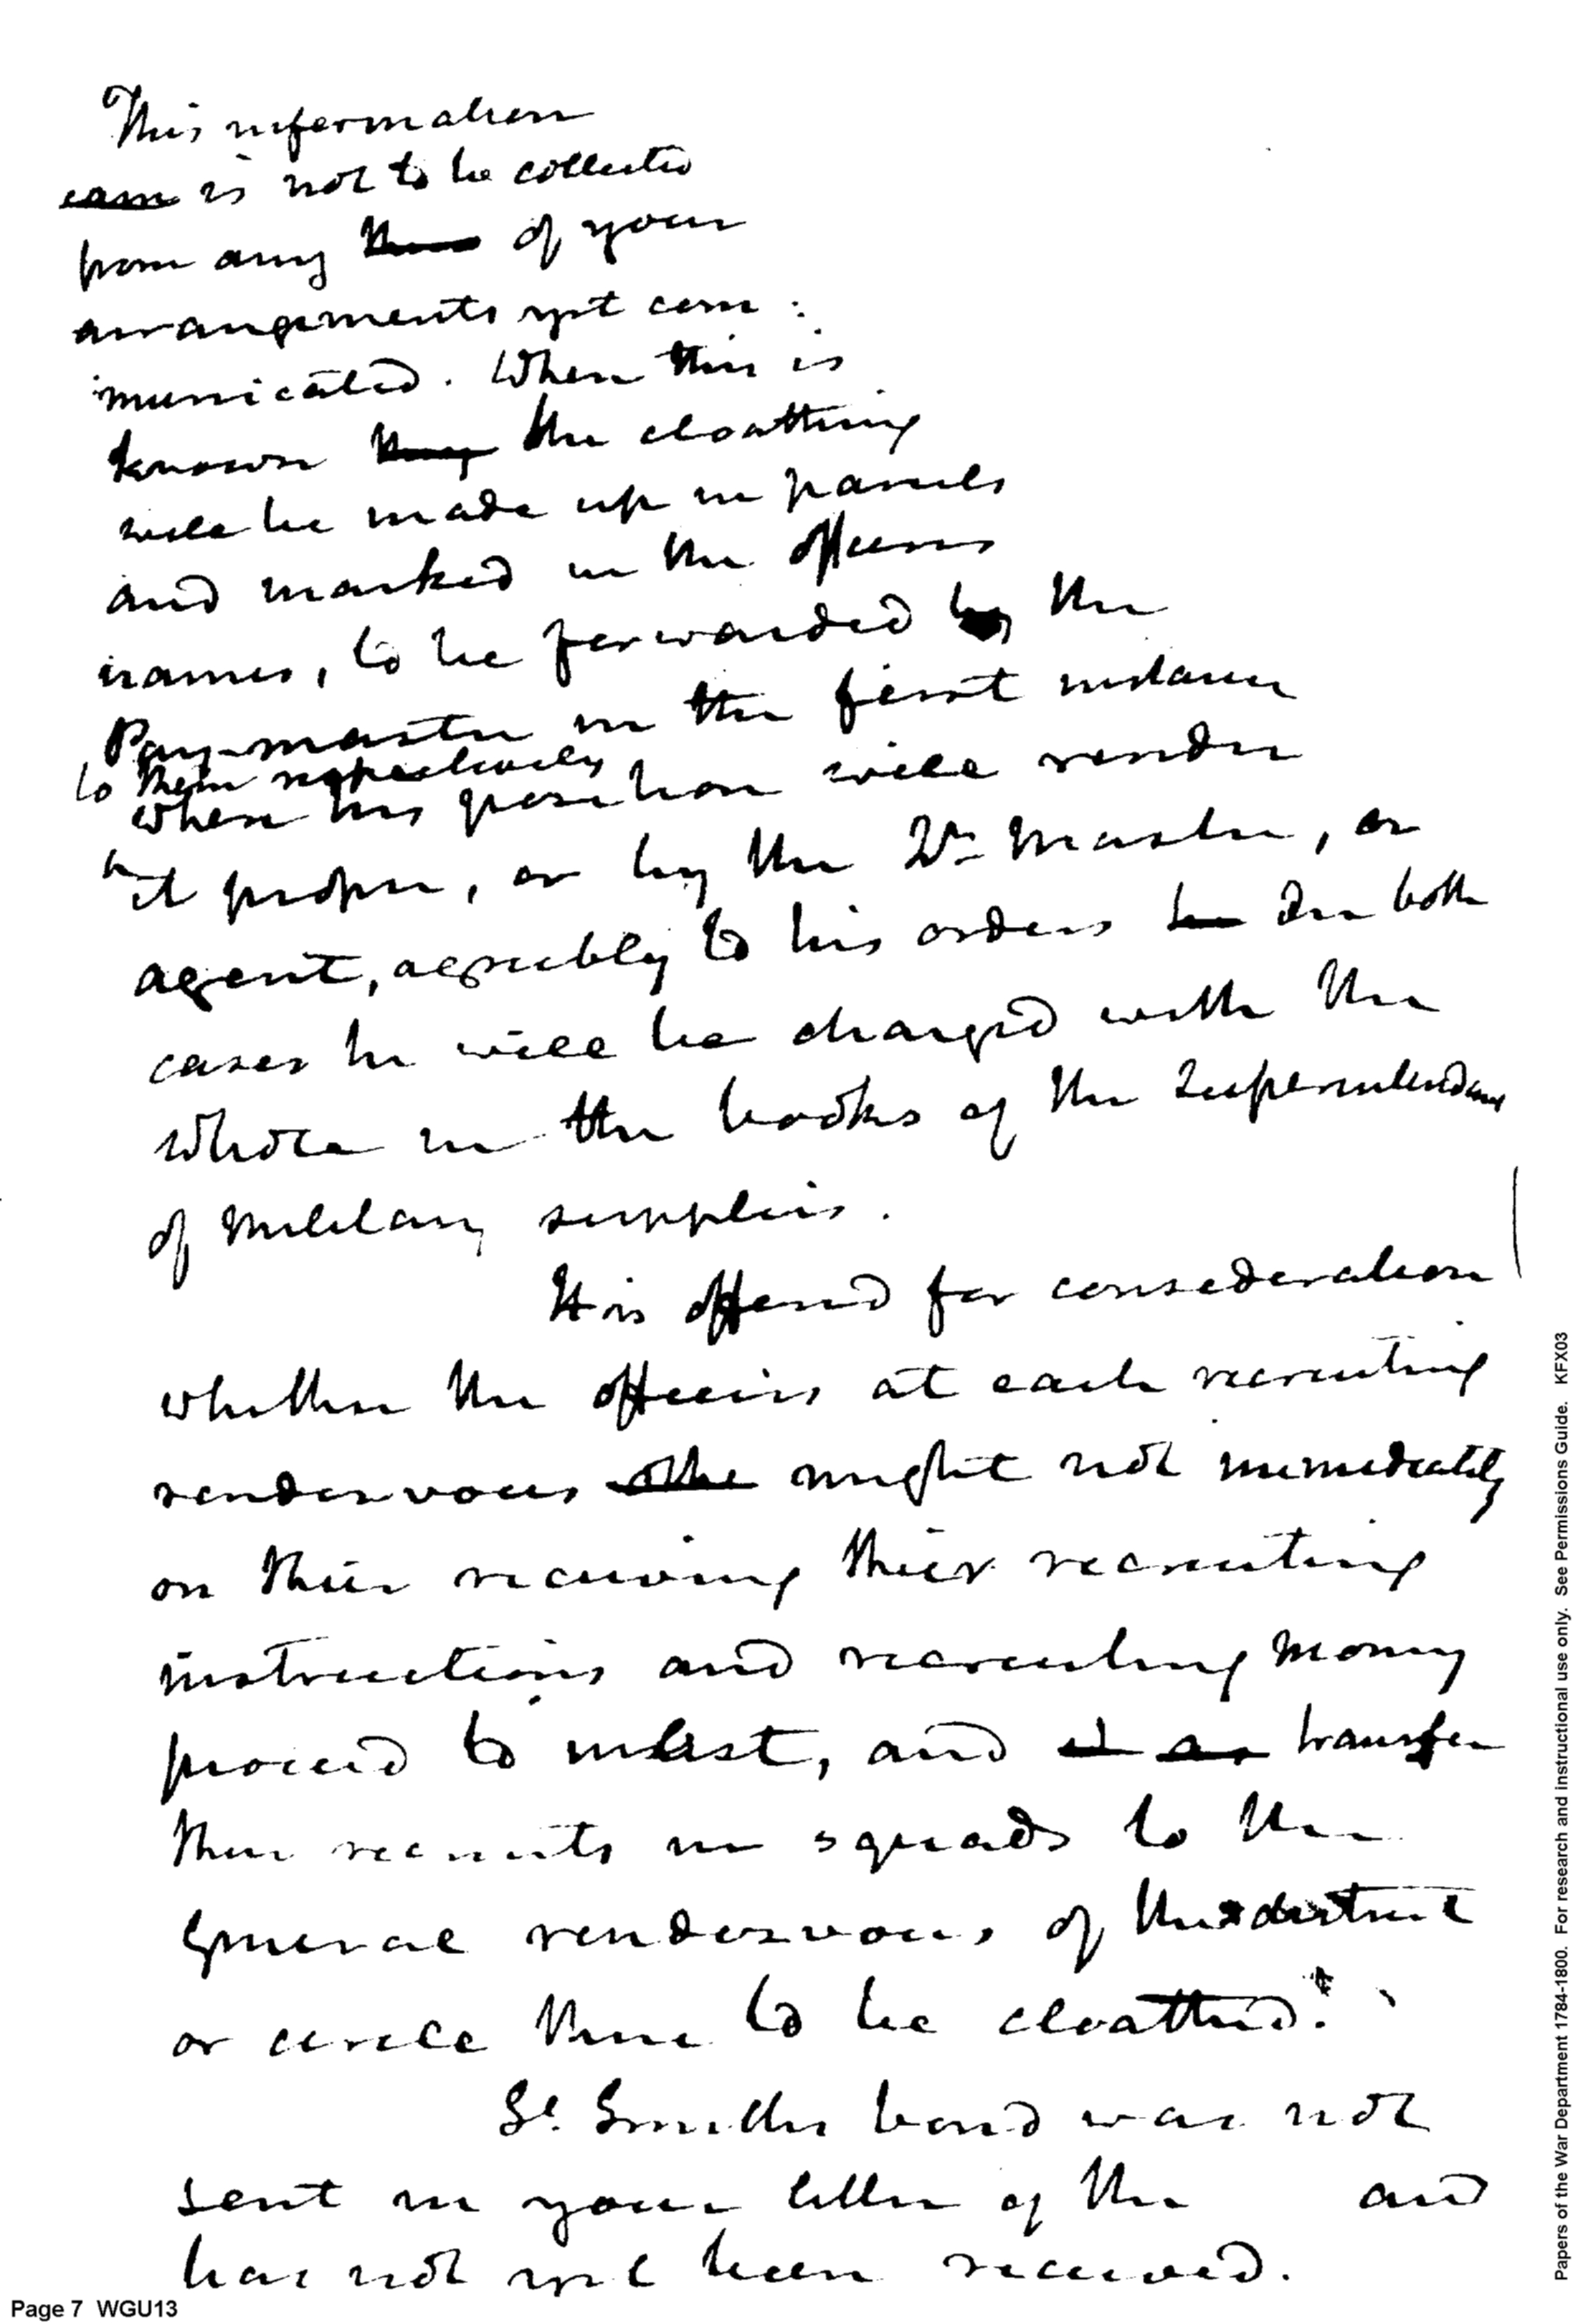 This information
came is not to be collected
from any these of your
arrangements yet com:
municated. When this is
known they the cloathing
will be made up in parcels
and marked in the officers
names, to be forwarded by the
Pay-master in the first instance
to them respectively
when his position will render
it proper, or by the Qr Master, or
agent, agreebly to his orders In both
cases he will be charged with the
whole in the books of the Superintendant
of Military supplies.
It is offered for consideration
whether the officers at each recruiting
rendezvous might not immediately
on their receiving their recruiting
instructions and recruiting money
proceed to inlist, and transfer
their recruits in squads to the
General rendezvous of the district
or circle there to be cloathed.
Lt. Smiths bond was not
sent in your letter of the and
has not yet been received.
Page 7 WGU13
Papers of the War Department 1784-1800. For research and instructional use only. See Permissions Guide. KFX03